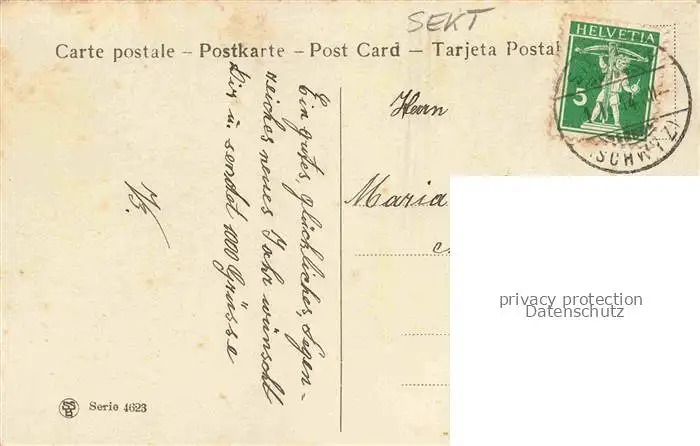 SEKT
Carte postale – Postkarte – Post Card – Tarjeta Postal
HELVETIA
5
14
(SCHWYZ)
Ein gutes, glückliches, segen-
reiches neues Jahr wünscht
Dir u. sendet 1000 Grüsse
Herrn
Maria
privacy protection
Datenschutz
Serie 4623